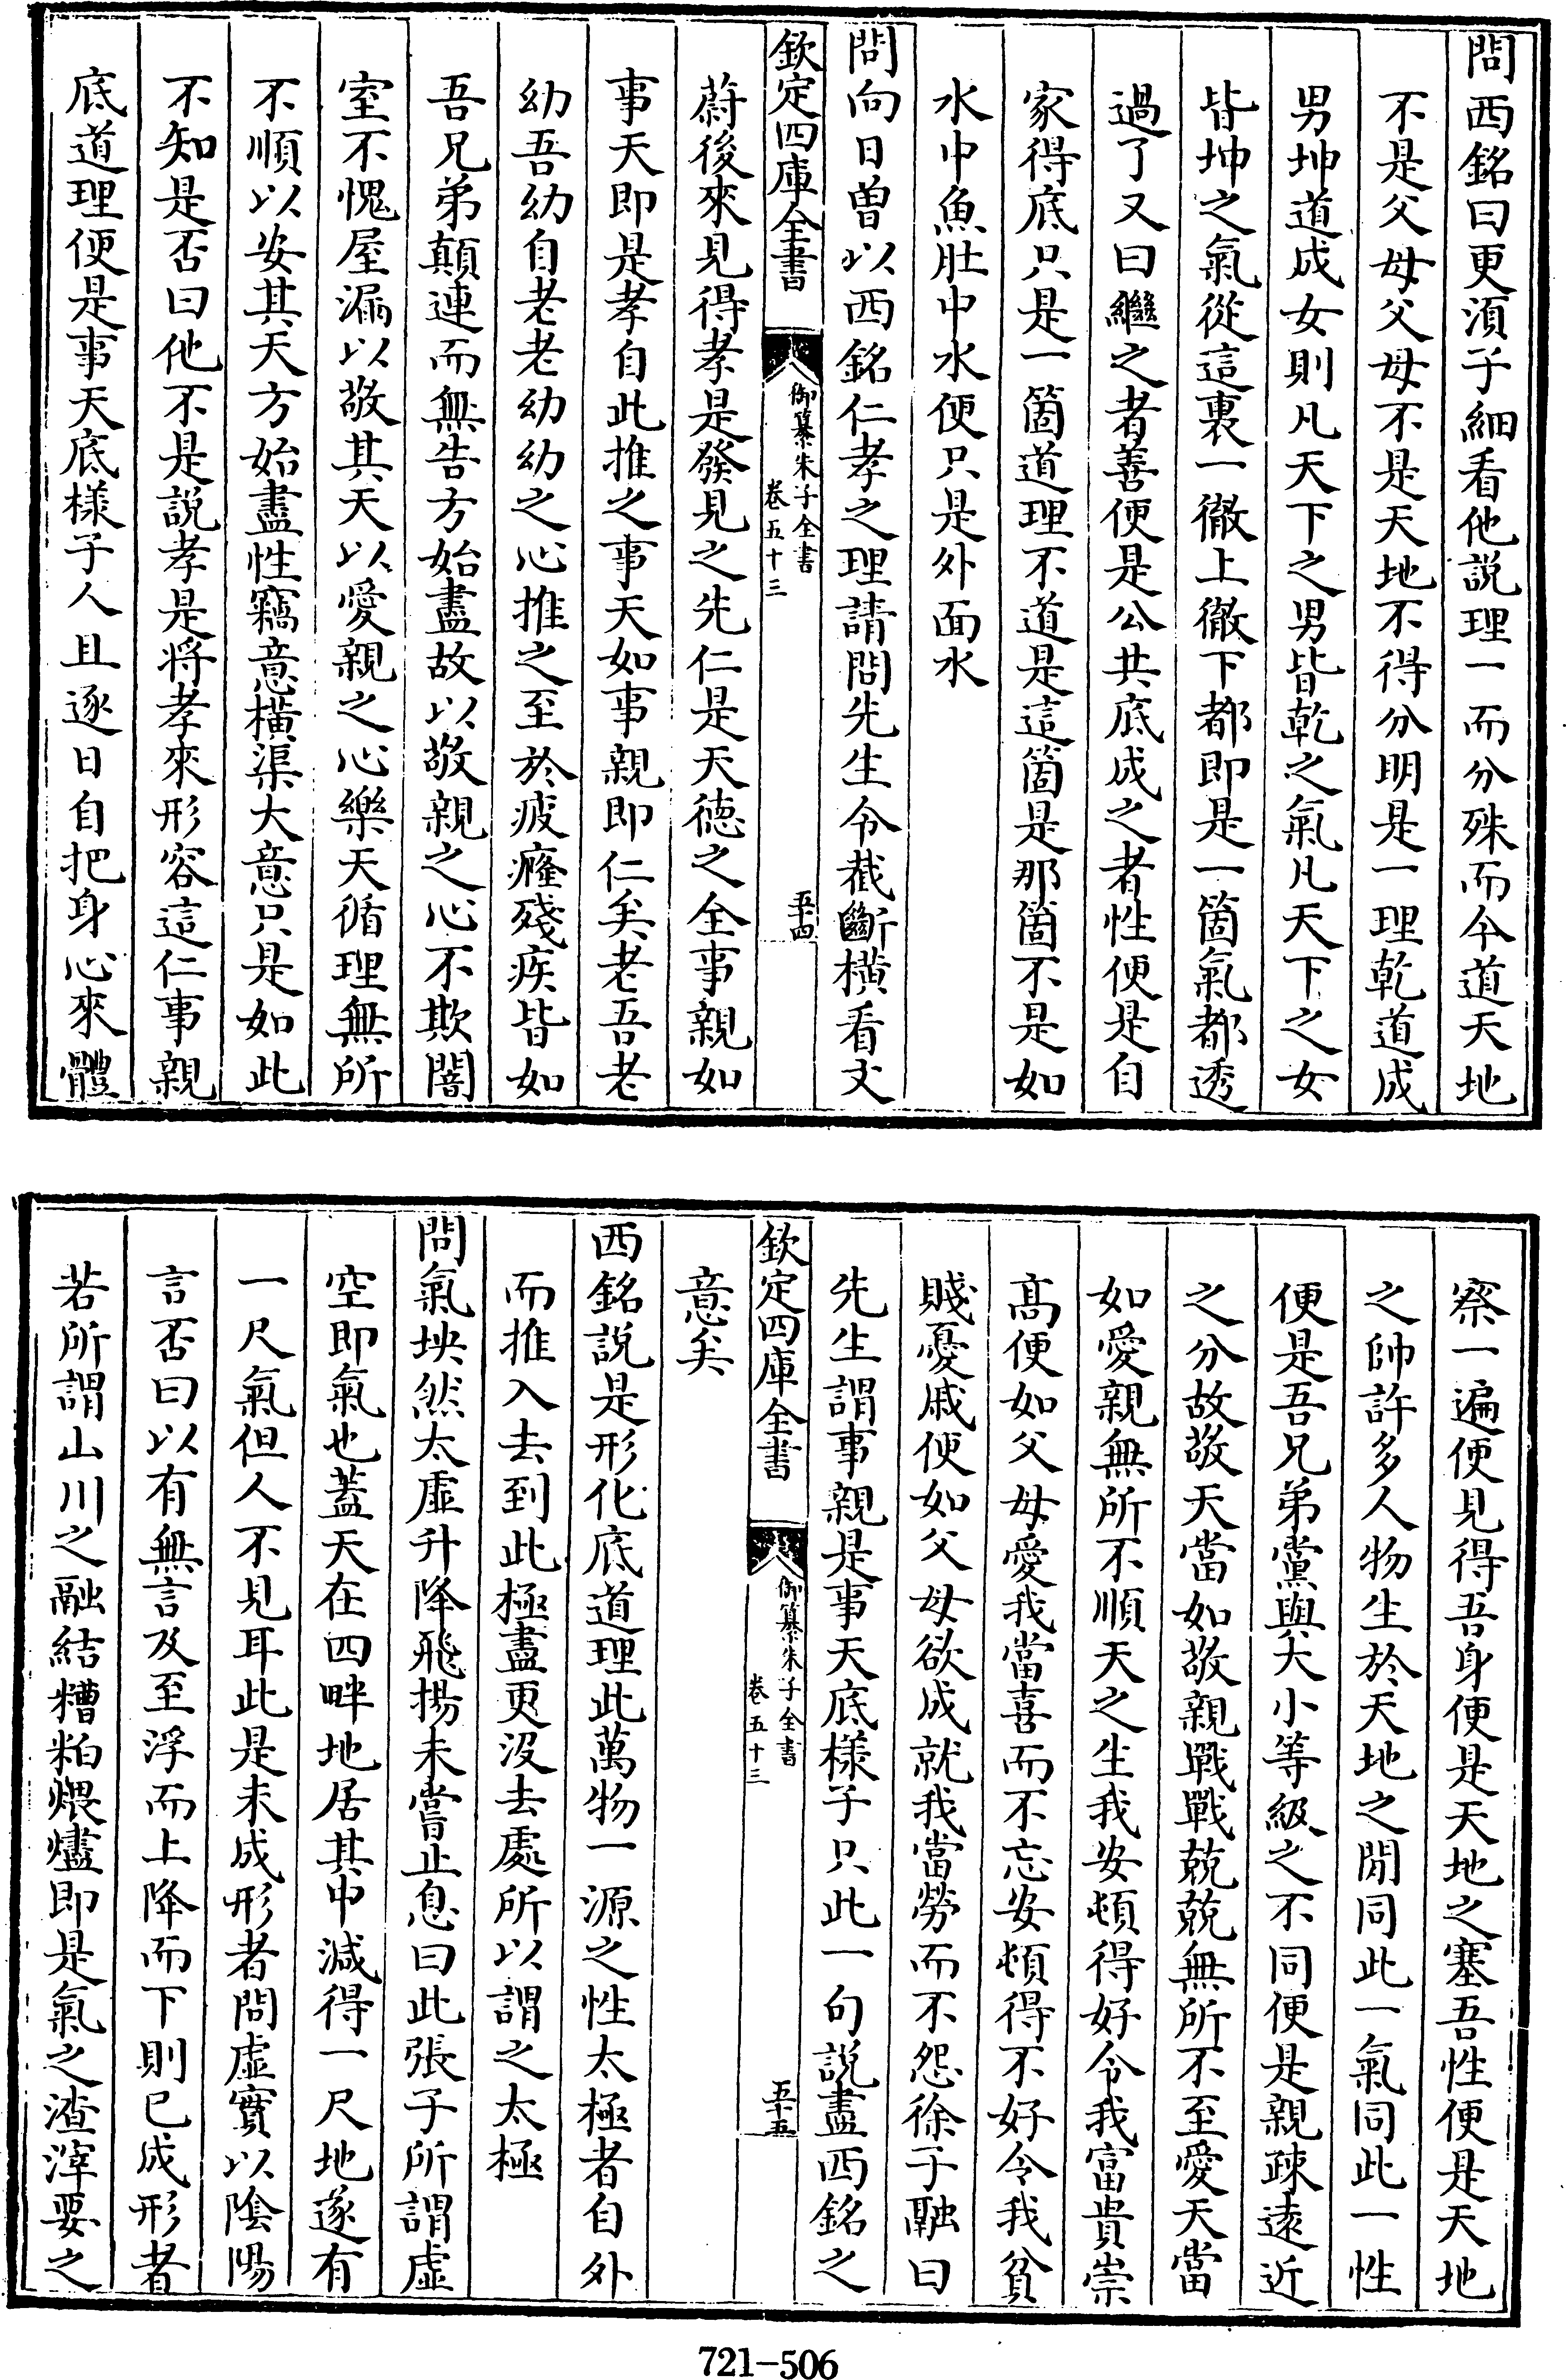 問西銘曰更湏子細看他説理一而分殊而今道天地
不是父母父母不是天地不得分明是一理乾道成
男坤道成女則凡天下之男皆乾之氣凡天下之女
皆坤之氣從這裏一徹上徹下都即是一箇氣都透
過了又曰繼之者善便是公共底成之者性便是自
家得底只是一箇道理不道是這箇是那箇不是如
水中魚肚中水便只是外面水
問向日曽以西銘仁孝之理請問先生令截斷橫看文
欽定四庫全書
御纂朱子全書
卷五十三
五十四
蔚後來見得孝是發見之先仁是天德之全事親如
事天即是孝自此推之事天如事親即仁矣老吾老
幼吾幼自老老幼幼之心推之至於疲癃殘疾皆如
吾兄弟顛連而無告方始盡故以敬親之心不欺闇
室不愧屋漏以敬其天以愛親之心樂天循理無所
不順以安其天方始盡性竊意橫渠大意只是如此
不知是否曰他不是説孝是將孝來形容這仁事親
底道理便是事天底樣子人且逐日自把身心來體
察一遍便見得吾身便是天地之塞吾性便是天地
之帥許多人物生於天地之間同此一氣同此一性
便是吾兄弟黨與大小等級之不同便是親疎遠近
之分故敬天當如敬親戰戰兢兢無所不至愛天當
如愛親無所不順天之生我安頓得好令我富貴崇
髙便如父母愛我當喜而不忘安頓得不好令我貧
賤憂戚便如父母欲成就我當勞而不怨徐子融曰
先生謂事親是事天底樣子只此一句説盡西銘之
欽定四庫全書
御纂朱子全書
卷五十三
五十五
意矣
西銘説是形化底道理此萬物一源之性太極者自外
而推入去到此極盡更沒去處所以謂之太極
問氣坱然太虛升降飛揚未嘗止息曰此張子所謂虛
空即氣也蓋天在四畔地居其中減得一尺地遂有
一尺氣但人不見耳此是未成形者問虛實以陰陽
言否曰以有無言及至浮而上降而下則已成形者
若所謂山川之融結糟粕煨燼即是氣之渣滓要之
721-506